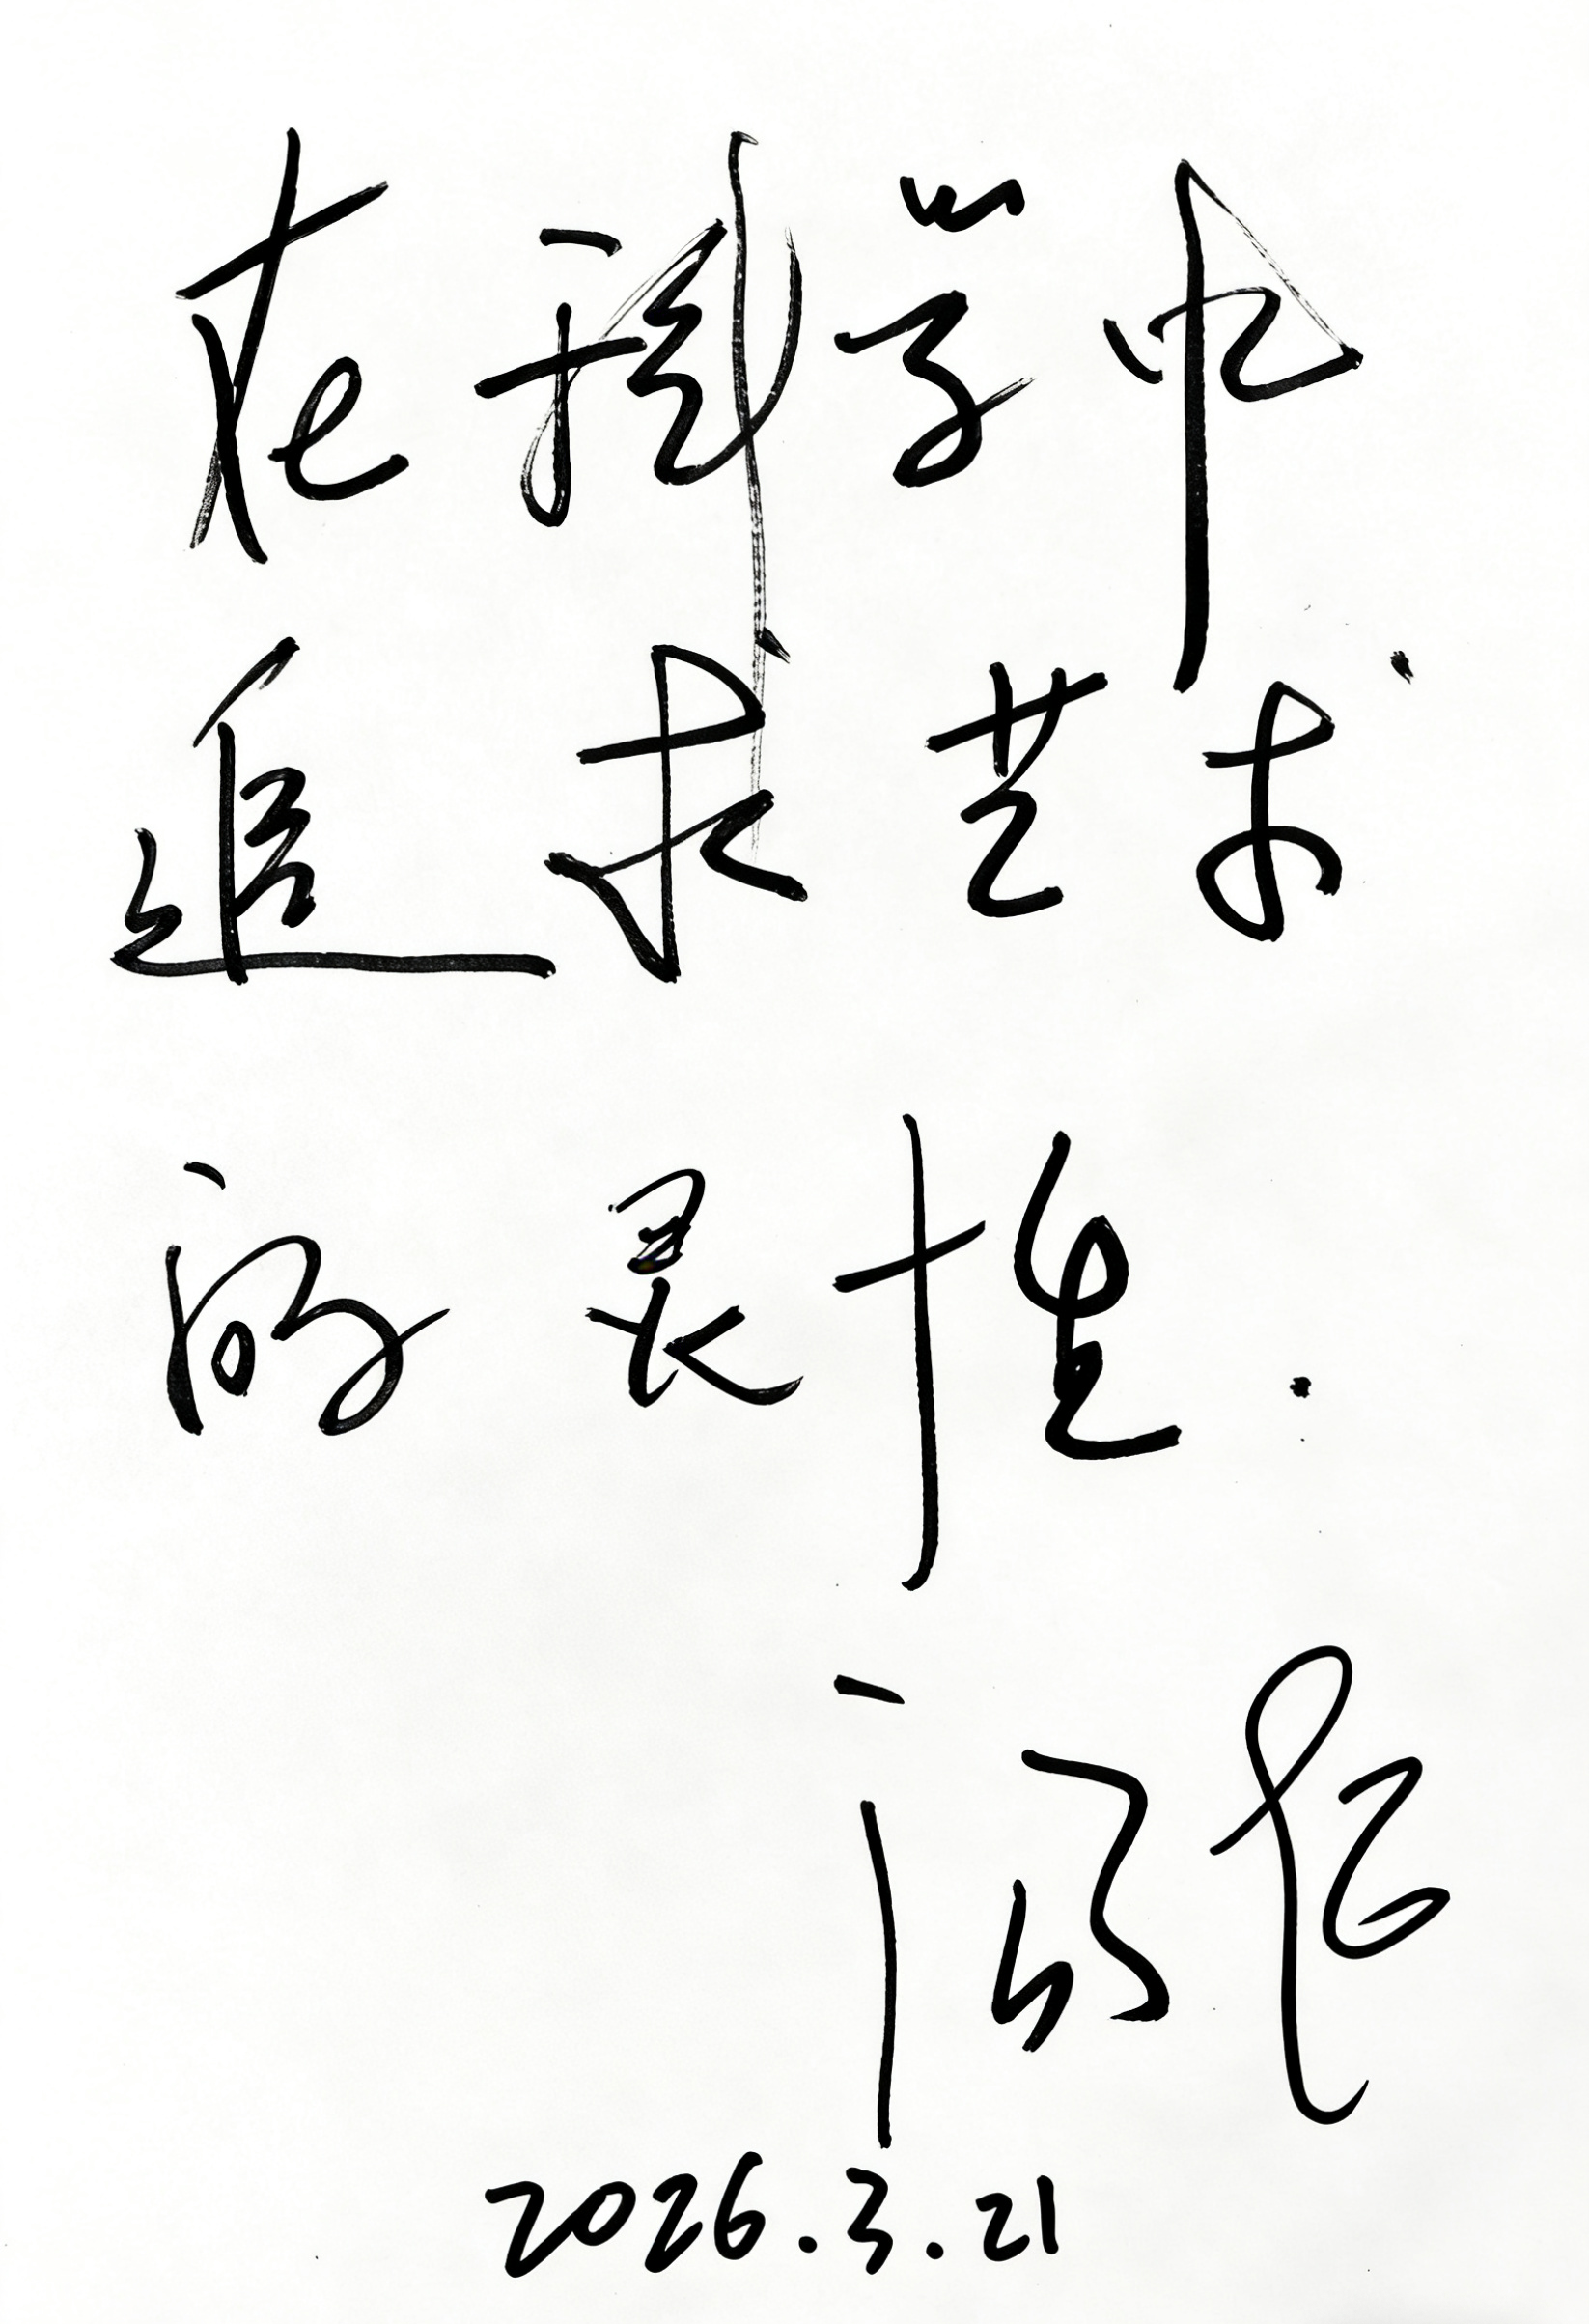 在科学中
追求艺术
的灵性.
2026.3.21